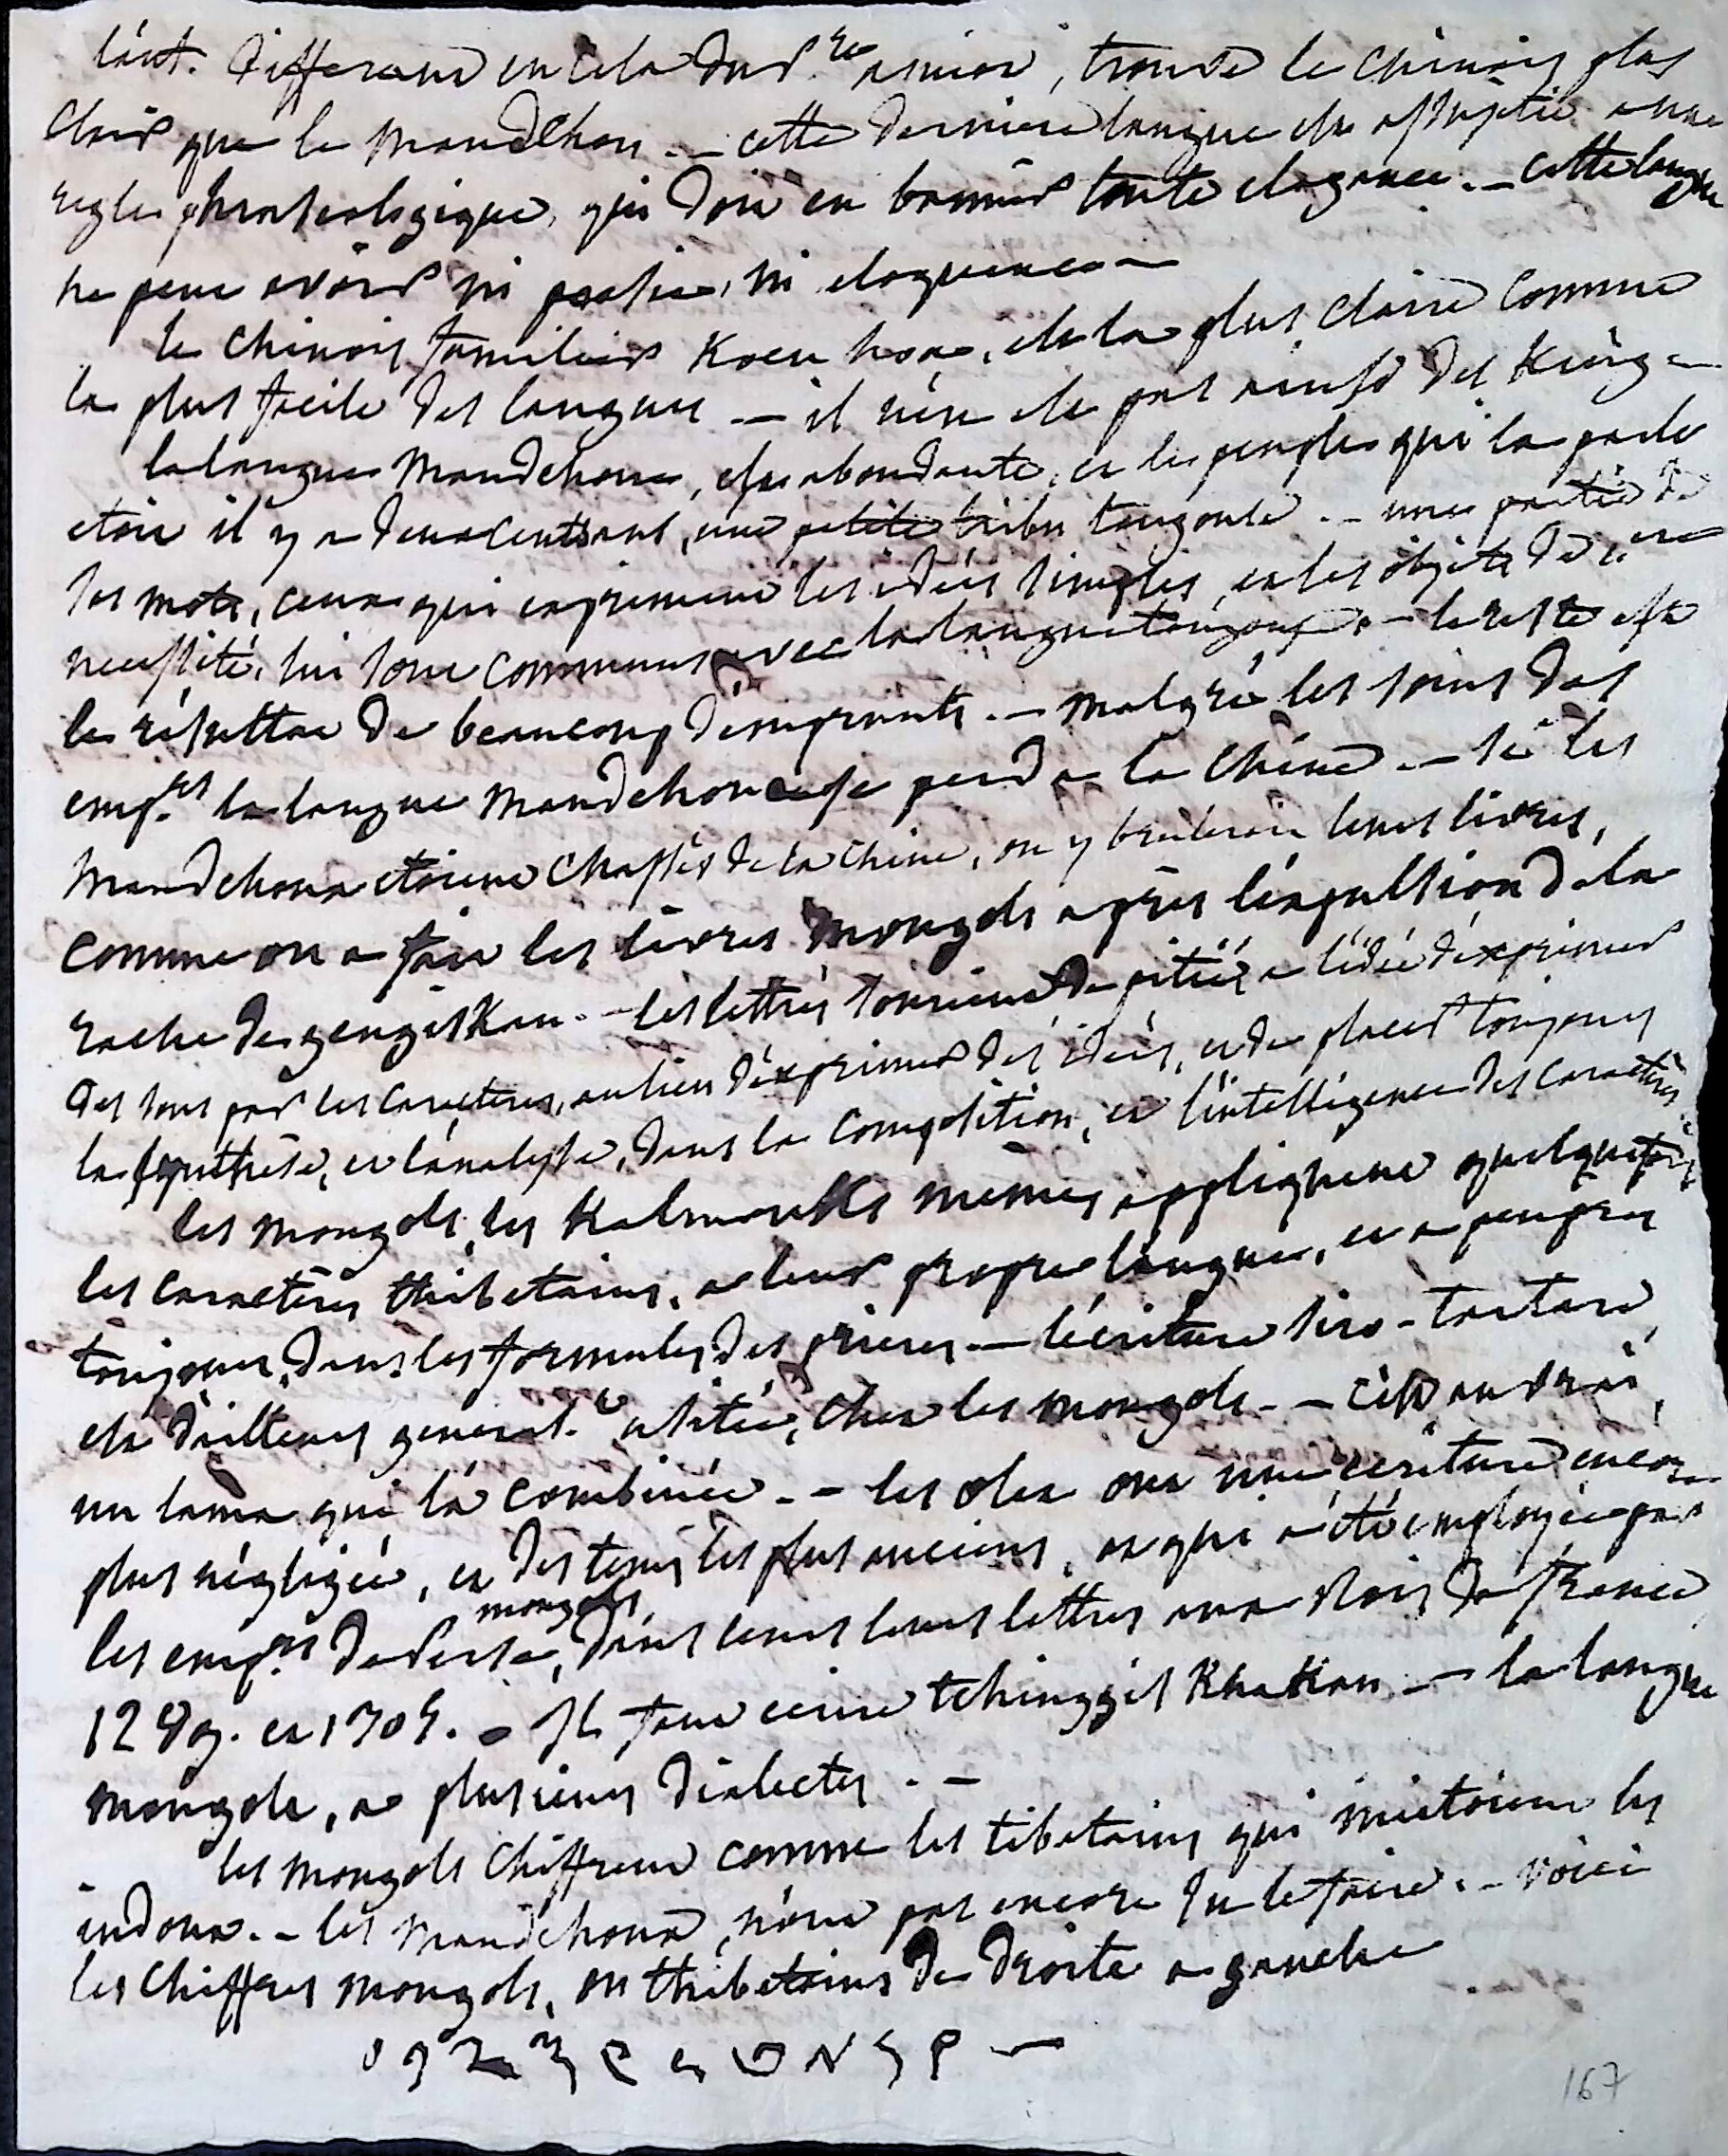 l'aut. differant en cela du P.re amiot, trouve le chinois plus
clair que le mandchou. — cette derniere langue est assujetie a une
regle phraseologique, qui doit en bannir toute elegance. — cette langue
ne peut avoir ni poesie, ni eloquence —
le chinois familier Koen hoa, est la plus claire comme
la plus facile des langues — il n'en est pas ainsi des King —
la langue mandchoue, est abondante, et le peuple qui la parle
etoit il y a deux cents ans, une petite tribu tongouse. — une partie de
ses mots, ceux qui expriment les idées simples, et les objets de 1.ere
necessité, lui sont communs avec la langue tongouse. — le reste est
le résultat de beaucoup d'emprunts. — malgré les soins des
emp.rs la langue mandchoue se perd a la Chine. — si les
mandchoux etoient chassés de la Chine, on y bruleroit leurs livres,
comme on a fait les livres mongols après l'expulsion de la
race de gengiskan. — les lettrés sourient de pitié a l'idée d'exprimer
des sons par les caracteres, au lieu d'exprimer des idées, et de placer toujours
la synthèse, et l'analyse, dans la composition, et l'intelligence des caractères
les mongols, les Kalmoukks mêmes appliquent quelquefois
les caractères thibetains, a leur propre langue, et a peu près
toujours, dans les formules des prieres. — l'écriture siro-tartare,
est d'ailleurs general.t usitée, chez les mongols. — c'est au vrai,
un lama qui l'a combinée. — les olet ont une écriture encore
plus négligée, et des tems les plus anciens, et qui a été employée par
les emp.rs mongols de Perse, dans leurs lettres aux Rois de france
1289. et 1305. — Il faut ecrire tchinggis Khakan. — la langue
mongole, a plusieurs dialectes. —
les mongols chiffrent comme les tibetains qui imitoient les
indoux. — les mandchoux, n'ont pas encore su le faire. — voici
les chiffres mongols, ou thibetains de droite a gauche
167